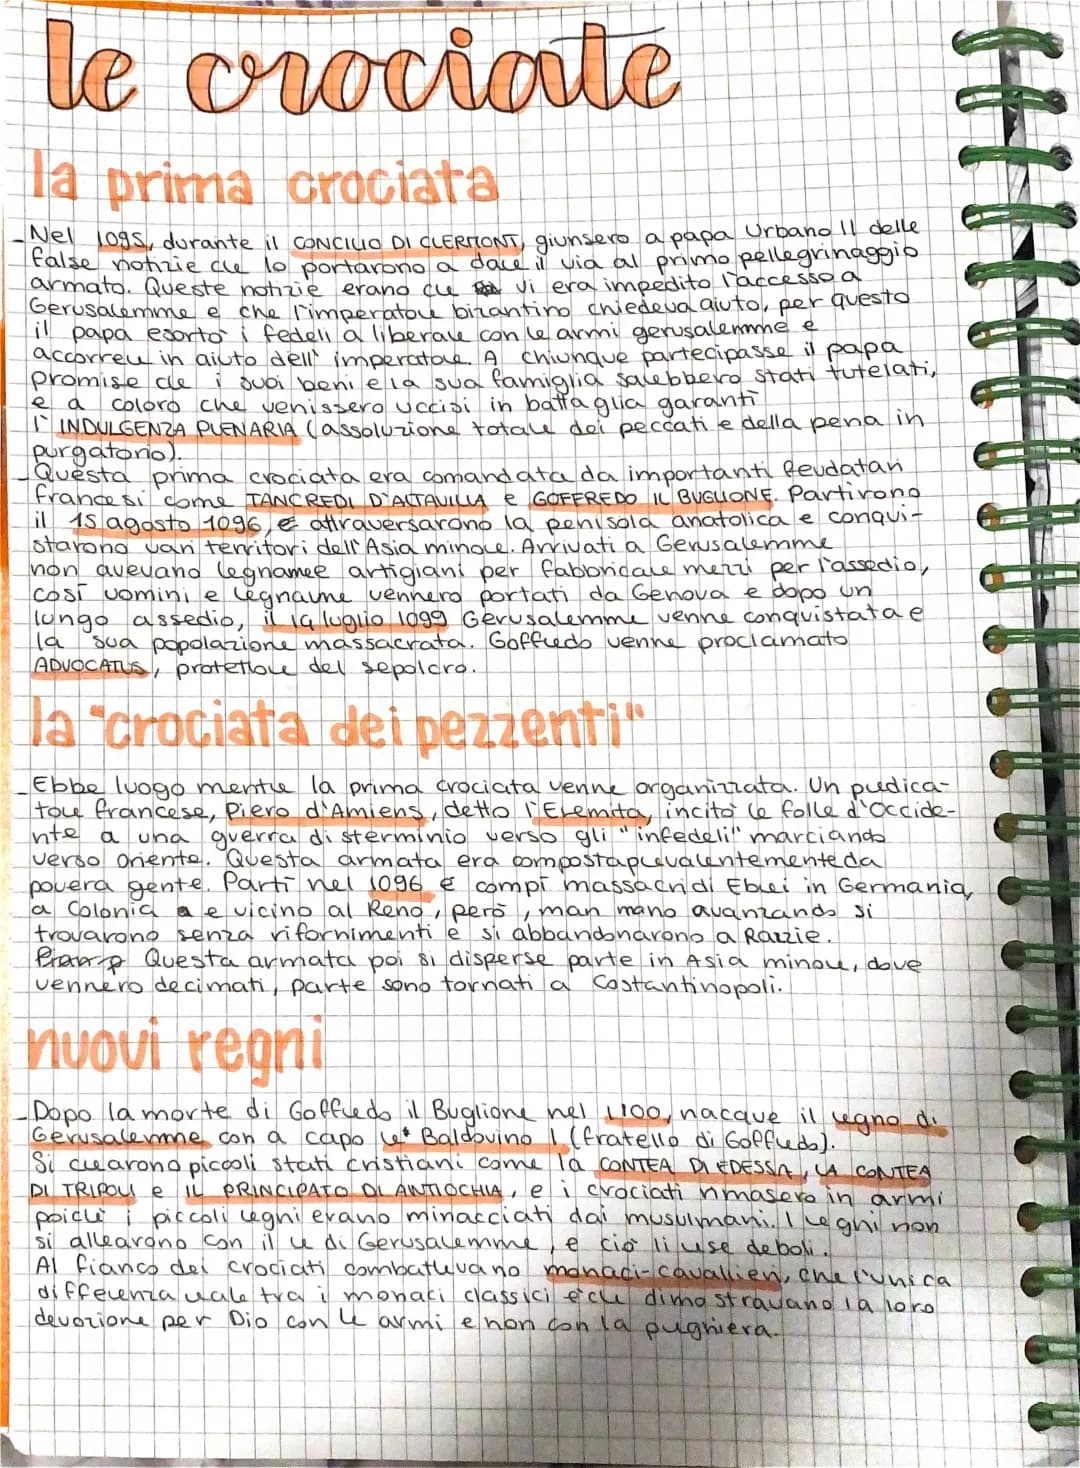 le crociate
la prima crociata
Nel 1095, durante il CONCILIO DI CLERMONT, giunsero a papa Urbano II delle
false notizie che lo portarono a dare il via al primo pellegrinaggio
armato. Queste notizie erano che vi era impedito l'accesso a
Gerusalemme e che l'imperatore bizantino chiedeva aiuto, per questo
il papa esortò i fedeli a liberare con le armi gerusalemme e
accorrere in aiuto dell'imperatore. A chiunque partecipasse il papa
promise che i suoi beni e la sua famiglia sarebbero stati tutelati,
e a coloro che venissero uccisi in battaglia garantì
l'INDULGENZA PLENARIA (assoluzione totale dei peccati e della pena in
purgatorio).
Questa prima crociata era comandata da importanti feudatari
francesi come TANCREDI D'ALTAVILLA e GOFFREDO IL BUGLIONE. Partirono
il 15 agosto 1096, e attraversarono la penisola anatolica e conqui-
starono vari territori dell'Asia minore. Arrivati a Gerusalemme
non avevano legname e artigiani per fabbricare mezzi per l'assedio,
così uomini e legname vennero portati da Genova e dopo un
lungo assedio, il 14 luglio 1099 Gerusalemme venne conquistata e
la sua popolazione massacrata. Goffredo venne proclamato
ADVOCATUS, protettore del sepolcro.
la "crociata dei pezzenti"
Ebbe luogo mentre la prima crociata venne organizzata. Un predica-
tore francese, Piero d'Amiens, detto l'Eremita, incitò le folle d'Occide-
nte a una guerra di sterminio verso gli "infedeli" marciando
verso oriente. Questa armata era composta prevalentemente da
povera gente. Partì nel 1096 e compì massacri di Ebrei in Germania,
a Colonia e vicino al Reno, però, man mano avanzando si
trovarono senza rifornimenti e si abbandonarono a Razzie.
Questa armata poi si disperse parte in Asia minore, dove
vennero decimati, parte sono tornati a Costantinopoli.
nuovi regni
Dopo la morte di Goffredo il Buglione nel 1100, nacque il regno di
Gerusalemme con a capo re Baldovino I (fratello di Goffredo).
Si crearono piccoli stati cristiani come la CONTEA DI EDESSA, LA CONTEA
DI TRIPOLI e IL PRINCIPATO DI ANTIOCHIA, e i crociati rimasero in armi
poichè i piccoli regni erano minacciati dai musulmani. I regni non
si allearono con il re di Gerusalemme, e ciò li rese deboli.
Al fianco dei crociati combattevano monaci-cavallieri, che l'unica
differenza reale tra i monaci classici è che dimostravano la loro
devozione per Dio con le armi e non con la pughiera.